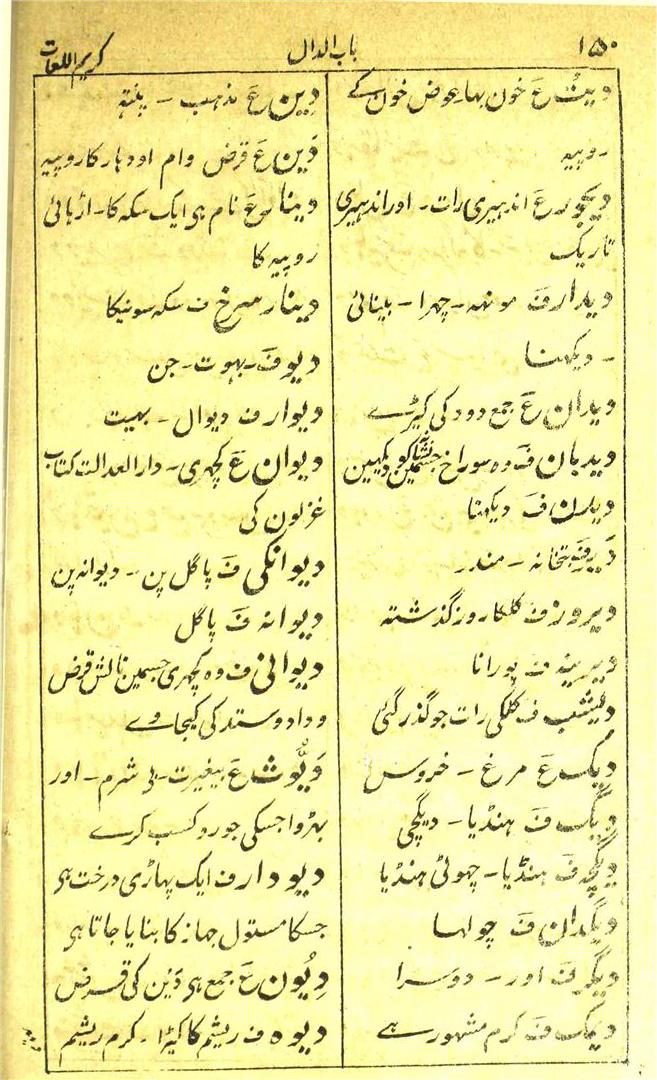 ۱۵۰
باب الدال
کریم اللغات
دیت ع خون بہا عوض خون کے
روپیہ
دیجور ع اندہیری رات۔ اور اندہیری
تاریک
دیدار ف مونہہ۔ چہرا۔ بینائی
۔ دیکہنا
دیدان ع جمع دود کی کیڑے
دیدبان ف وہ سوراخ جسمین نشانہ کو دیکہین
دیدن ف دیکہنا
دَیر ف بتخانہ۔ مندر
دیروز ف کلکا روز گذشتہ
دیرینہ ف پورانا
دیشب ف کلکی رات جو گذر گئی
دیک ع مرغ۔ خروس
دیگ ف ہنڈیا۔ دیگچی
دیگچہ ف ہنڈیا۔ چہوٹی ہنڈیا
دیگدان ف چولہا
دیگر ف اور۔ دوسرا
دیمک ف کرم مشہور ہے
دِین ع مذہب۔ پنتہہ
دَین ع قرض وام اودہار کا روپیہ
دینار ع نام ہی ایک سکہ کا۔ اڑہائی
روپیہ کا
دینار سرخ ف سکہ سونیکا
دیو ف۔ بہوت۔ جن
دیوار ف دیوال۔ بہیت
دیوان ع کچہری۔ دار العدالت کتاب
غزلون کی
دیوانگی ف پاگل پن۔ دیوانہ پن
دیوانہ ف پاگل
دیوانی ف وہ کچہری جسمین نالش قرض
و داد و ستد کی کیجاوے
دَیُّوث ع بیغیرت۔ بی شرم۔ اور
بہڑوا جسکی جورو کسب کرے
دیودار ف ایک پہاڑی درخت ہی
جسکا مستول جہاز کا بنایا جاتا ہی
دُیُون ع جمع ہی دَین کی قرض
دیوہ ف ریشم کا کیڑا۔ کرم ریشم